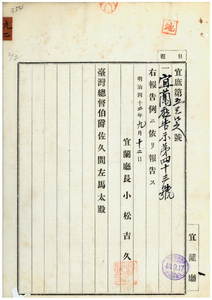 宜庶第號
一宜蘭廳告示第四十三號
右報告例ニ依リ報告ス
明治四十四年九月十二日
宜蘭廳長小松吉久
臺灣總督伯爵佐久間左馬太殿
宜蘭廳